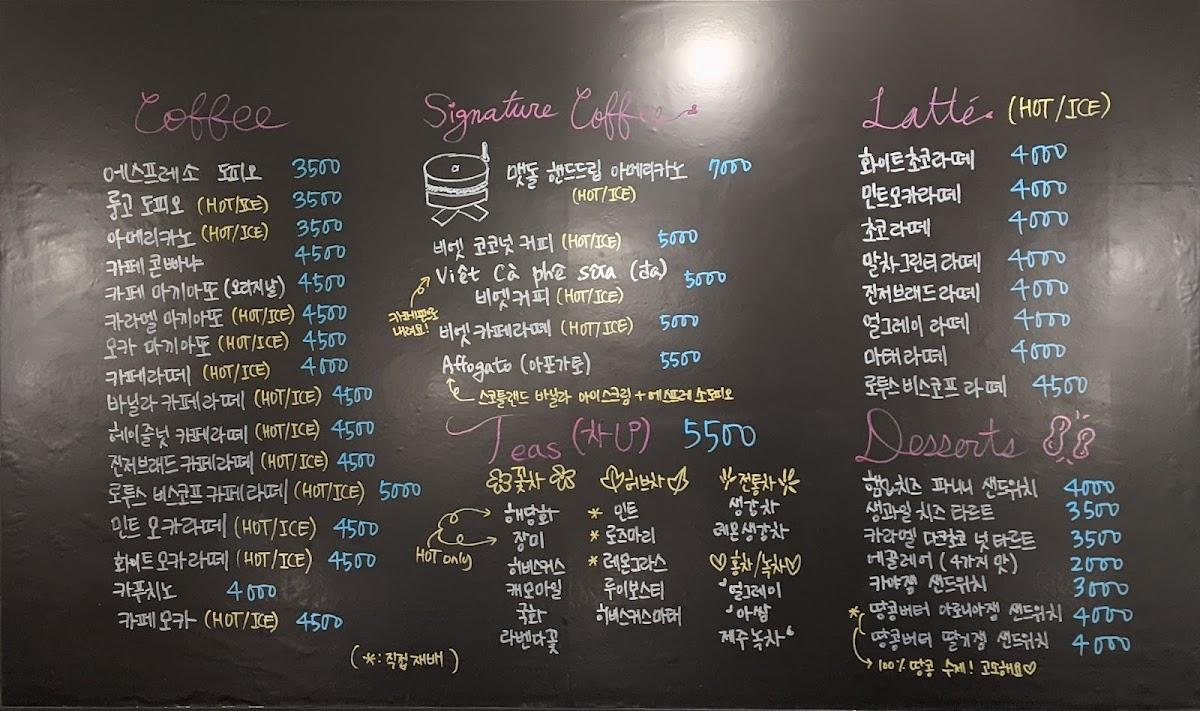 Coffee
에스프레소 도피오 3500
룽고 도피오 (HOT/ICE) 3500
아메리카노 (HOT/ICE) 3500
카페 콘빠냐 4500
카페 마끼아또 (오리지날) 4500
카라멜 마끼아또 (HOT/ICE) 4500
모카 마끼아또 (HOT/ICE) 4500
카페라떼 (HOT/ICE) 4000
바닐라 카페라떼 (HOT/ICE) 4500
헤이즐넛 카페라떼 (HOT/ICE) 4500
진저브래드 카페라떼 (HOT/ICE) 4500
로투스 비스코프 카페라떼 (HOT/ICE) 5000
민트 모카라떼 (HOT/ICE) 4500
화이트모카라떼 (HOT/ICE) 4500
카푸치노 4000
카페모카 (HOT/ICE) 4500
(*: 직접재배)
Signature Coffee
맷돌 핸드드립 아메리카노 7000
(HOT/ICE)
비엣 코코넛 커피 (HOT/ICE) 5000
Việt Cà phê sữa (đá) 5000
비엣커피 (HOT/ICE)
카페쓰어
내려요!
비엣카페라떼 (HOT/ICE) 5000
Affogato (아포가토) 5500
스코틀랜드 바닐라 아이스크림 + 에스프레소도피오
Teas (차) 5500
꽃차
해당화
장미
HOT only
히비스커스
캐모마일
국화
라벤다꽃
허브차
* 민트
* 로즈마리
* 레몬그라스
루이보스티
히비스커스마테
전통차
생강차
레몬생강차
♡홍차/녹차♡
얼그레이
아쌈
제주녹차
Latté (HOT/ICE)
화이트초코라떼 4000
민트모카라떼 4000
초코라떼 4000
말차그린티라떼 4000
진저브래드라떼 4000
얼그레이라떼 4000
마테라떼 4000
로투스비스코프라떼 4500
Desserts
햄&치즈 파니니 샌드위치 4000
생과일치즈타르트 3500
카라멜 마카다미아 넛타르트 3500
에끌레어 (4가지 맛) 2000
카야잼 샌드위치 3000
* 땅콩버터 아로니아잼 샌드위치 4000
땅콩버터 딸기잼 샌드위치 4000
100% 땅콩 수제! 고소해요♡